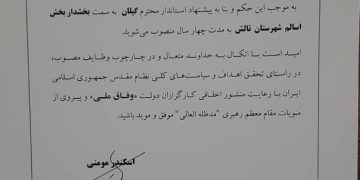 به موجب این حکم و بنا به پیشنهاد استاندار محترم گیلان به سمت بخشدار بخش
اسالم شهرستان تالش به مدت چهار سال منصوب می‌شوید.
امید است با اتکال به خداوند متعال و در چارچوب وظایف مصوب،
در راستای تحقق اهداف و سیاست‌های کلی نظام مقدس جمهوری اسلامی
ایران با رعایت منشور اخلاقی کارگزاران دولت «وفاق ملی» و پیروی از
منویات مقام معظم رهبری "مدظله العالی" موفق و موید باشید.
اسکندر مومنی